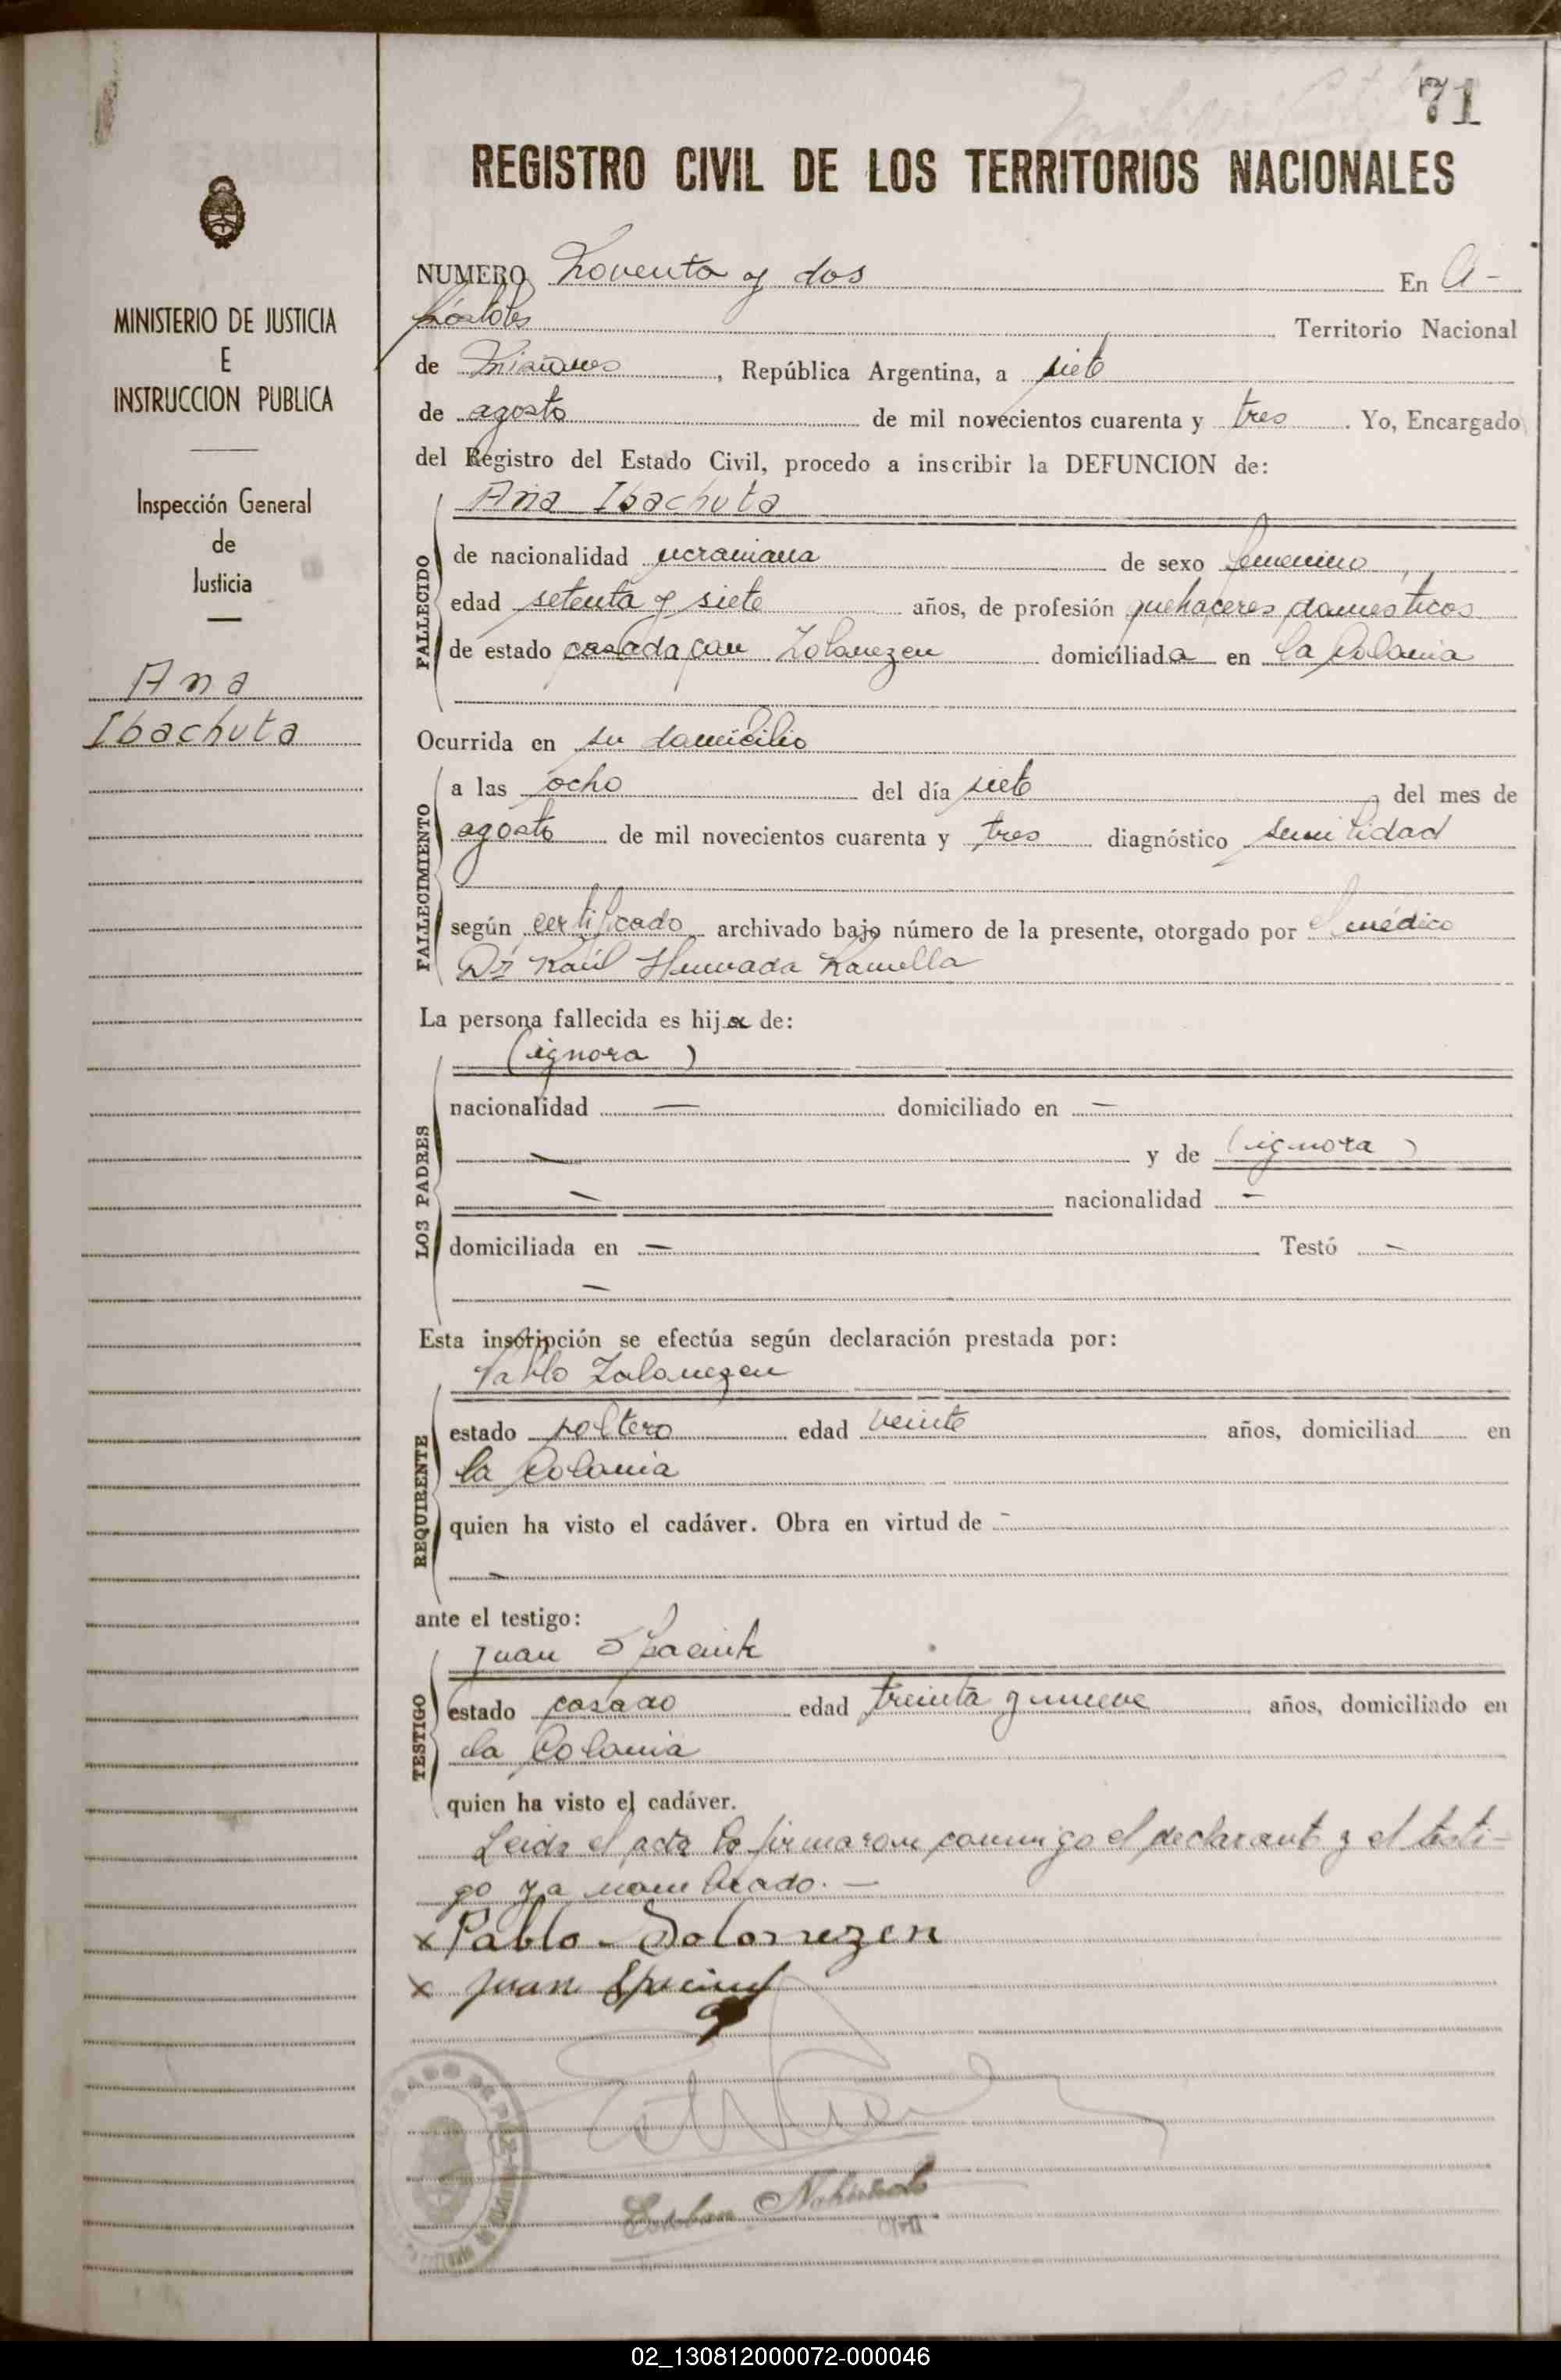 71
REGISTRO CIVIL DE LOS TERRITORIOS NACIONALES
MINISTERIO DE JUSTICIA
E
INSTRUCCION PUBLICA
Inspección General
de
Justicia
Ana
Ibachuta
NUMERO Noventa y dos En A-
póstoles Territorio Nacional
de Misiones, República Argentina, a siete
de agosto de mil novecientos cuarenta y tres. Yo, Encargado
del Registro del Estado Civil, procedo a inscribir la DEFUNCION de:
Ana Ibachuta
FALLECIDO
de nacionalidad ucraniana de sexo femenino
edad setenta y siete años, de profesión quehaceres domesticos
de estado casada con Zolonezen domiciliada en la Colonia
Ocurrida en su domicilio
FALLECIMIENTO
a las ocho del día siete del mes de
agosto de mil novecientos cuarenta y tres diagnóstico senilidad
según certificado archivado bajo número de la presente, otorgado por el médico
Dr Raúl
La persona fallecida es hija de:
LOS PADRES
(ignora)
nacionalidad — domiciliado en —
— y de (ignora)
— nacionalidad —
domiciliada en — Testó —
—
Esta inscripción se efectúa según declaración prestada por:
REQUIRENTE
Pablo Zolonezen
estado soltero edad veinte años, domiciliad en
la Colonia
quien ha visto el cadáver. Obra en virtud de -
-
ante el testigo:
TESTIGO
Juan
estado casado edad treinta y nueve años, domiciliado en
la Colonia
quien ha visto el cadáver.
Leida el acta la firmaron conmigo el declarante y el testi-
go ya nombrado. —
x Pablo - Solonezen
x Juan
Esteban
02_130812000072-000046